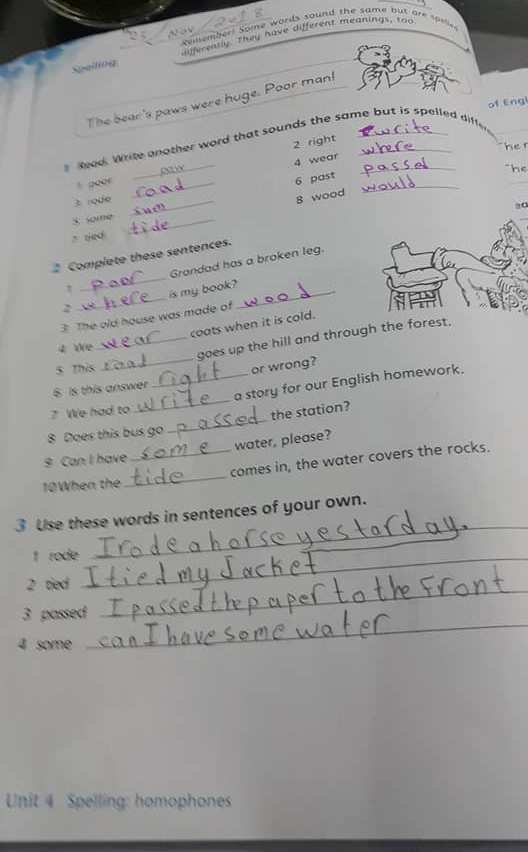 25 Nov 2018
Spelling
Remember! Some words sound the same but are spelled
differently. They have different meanings, too.
The bear's paws were huge. Poor man!
1 Read. Write another word that sounds the same but is spelled
1 poor paw
2 right write
3 rode road
4 wear where
5 some sum
6 past passed
7 tied tide
8 wood would
2 Complete these sentences.
1 poor Grandad has a broken leg.
2 where is my book?
3 The old house was made of wood
4 We wear coats when it is cold.
5 This road goes up the hill and through the forest.
6 Is this answer right or wrong?
7 We had to write a story for our English homework.
8 Does this bus go passed the station?
9 Can I have some water, please?
10 When the tide comes in, the water covers the rocks.
3 Use these words in sentences of your own.
1 rode I rode a horse yestarday.
2 tied I tied my Jacket
3 passed I passed the paper to the Front
4 some can I have some water
Unit 4 Spelling: homophones
of Engl